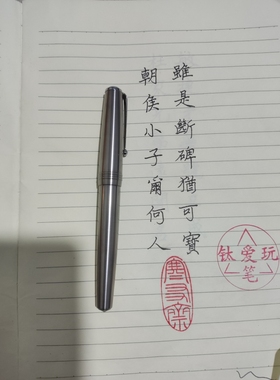 雖是斷碑猶可寶
朝侯小子爾何人
钛爱玩
笔